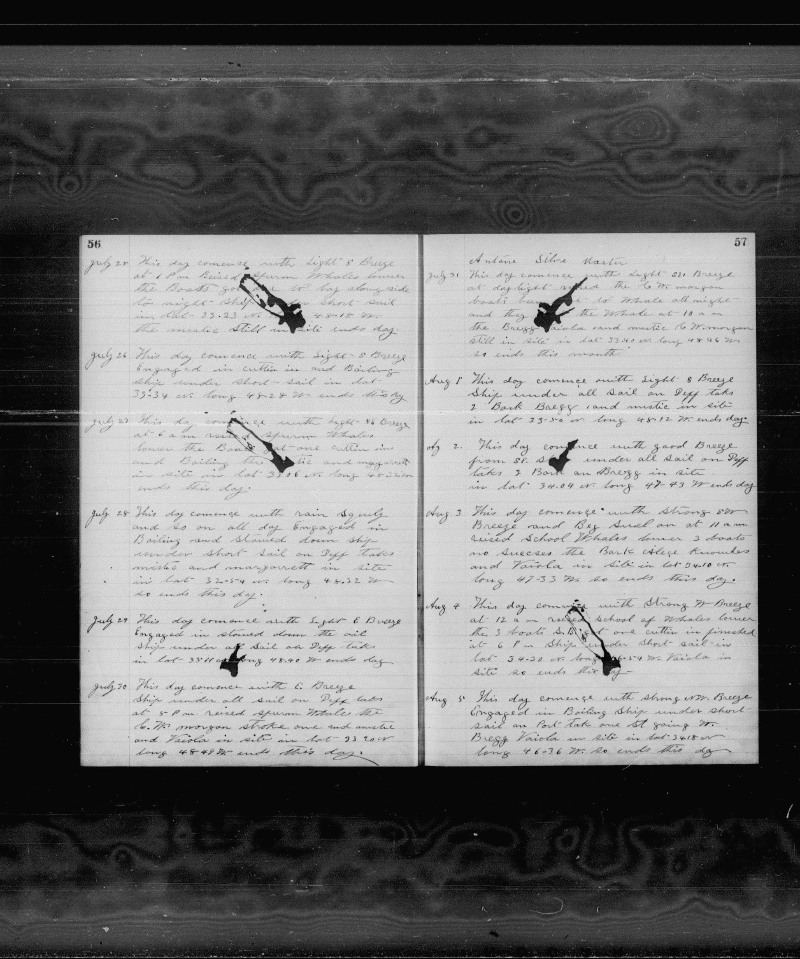 56
July 25 This day comence with Light S Breeze
at 6 P m Reised Spurm Whales lower
the Boats got one to bay along side
to night Ship Short Sail
in lat 33-23 N. 48-18 W.
the mistic Still in site ends day.
July 26 This day comence with Light S Breeze
Engaged in cuttin in and Boiling
Ship under Short Sail in lat
33-34 N. long 48-28 W ends this day
July 27 This day comence with Light Breeze
at 6 a m reised Spurm Whales
lower the Boats one cuttin in
and Boiling the mistic and margarrett
in site in lat N. long
ends this day.
July 28 This day comence with rain Squely
and so on all day Engaged in
Boiling and Stowed down Ship
under Short Sail on Deff taks
mistic and margarrett in site
in lat 32-54 N. long 48.32 W
so ends this day.
July 29 This day comence with Light E Breeze
Engaged in stowed down the oil
Ship under all Sail on Deff taks
in lat long 48.40 W ends day
July 30 This day comence with E. Breeze
Ship under all Sail on Deff taks
at 5 P m reised Spurm Whales the
C. W. morgon stroke one and mistic
and Vaiola in site in lat 33 20 N
long 48-49 W ends this day.
57
Antone Silva Master
July 31 This day comence with Light Breeze
at daylight the C W. morgon
boats to Whale all night
and they the Whale at 10 a m
the Bregg Vaiola and mistic C W. morgon
Still in site in lat 33.40 N long 48 46 W
so ends this month
Aug 1 This day comence with Light S Breeze
Ship under all Sail on Deff taks
2 Bark Bregg and mistic in site
in lat 33-50 N long 48-12 W. ends day.
Ag 2. This day comence with good Breeze
from under all Sail on Deff
taks 2 Bark an Bregg in site
in lat 34.04 N. long 47-43 W ends day
Aug 3 This day comence with Strong SW
Breeze and Beg Sweal on at 11 a m
reised School Whales lower 3 boats
no Sucsess the Bark Alege Knowles
and Vaiola in site in lat 34.10 N.
long 47-33 W. so ends this day.
Aug 4 This day comence with Strong W Breeze
at 12 a m reised School of Whales lower
the 3 boats one cuttin in fineched
at 6 P m Ship under Short Sail in
lat 34-20 N. long 54 W. Vaiola in
site so ends this day
Aug 5 This day comence with strong NW. Breeze
Engaged in Boiling Ship under Short
sail on Port take one St going W.
Bregg Vaiola in site in lat 34.18 N
long 46-36 W. so ends this day